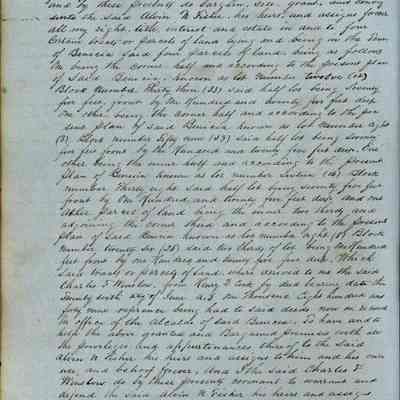 and by these presents do bargain, sell, grant, and convey
unto the said Alvin W Fisher, his heirs and assigns forever
all my right, title interest and estate in and to four
certain tracts or parcels of land lying and being in the Town
of Benecia said four parcels of land, being as follows
One being the corner half and according to the present plan
of said Benecia, known as lot number twelve (12)
Block number thirty three (33) said half lot being Seventy
five feet, front by One hundred and twenty five feet deep
One other being the corner half and according to the pre
sent plan of said Benecia known as lot number eight
(8) Block number fifty nine (59) said half lot being seventy
five feet front by One hundred and twenty five feet deep. One
other being the inner half and according to the present
plan of Benecia known as lot number sixteen (16) Block
number thirty eight said half lot being seventy five feet
front by One hundred and twenty five feet deep and one
other parcel of land being the inner two thirds and
adjoining the corner third and according to the present
plan of said Benecia known as lot number eight (8) Block
number twenty six (26) said two thirds of lot being One hundred
feet front by One hundred and twenty five feet deep. Which
said tracts or parcels of land were deeded to me the said
Charles F Winslow, from Henry D Cook by deed bearing date the
day of June A.D. One thousand Eight hundred and
forty nine reference being had to said deeds now on record
in office of the Alcalde of said Benecia. To have and to
hold the above granted and Bargained premises with all
the privileges and appurtenances thereof to the said
Alvin W Fisher his heirs and assigns to him and his own
use, and behoof forever. And I the said Charles F
Winslow do by these presents covenant to warrant and
defend the said Alvin W Fisher his heirs and assigns